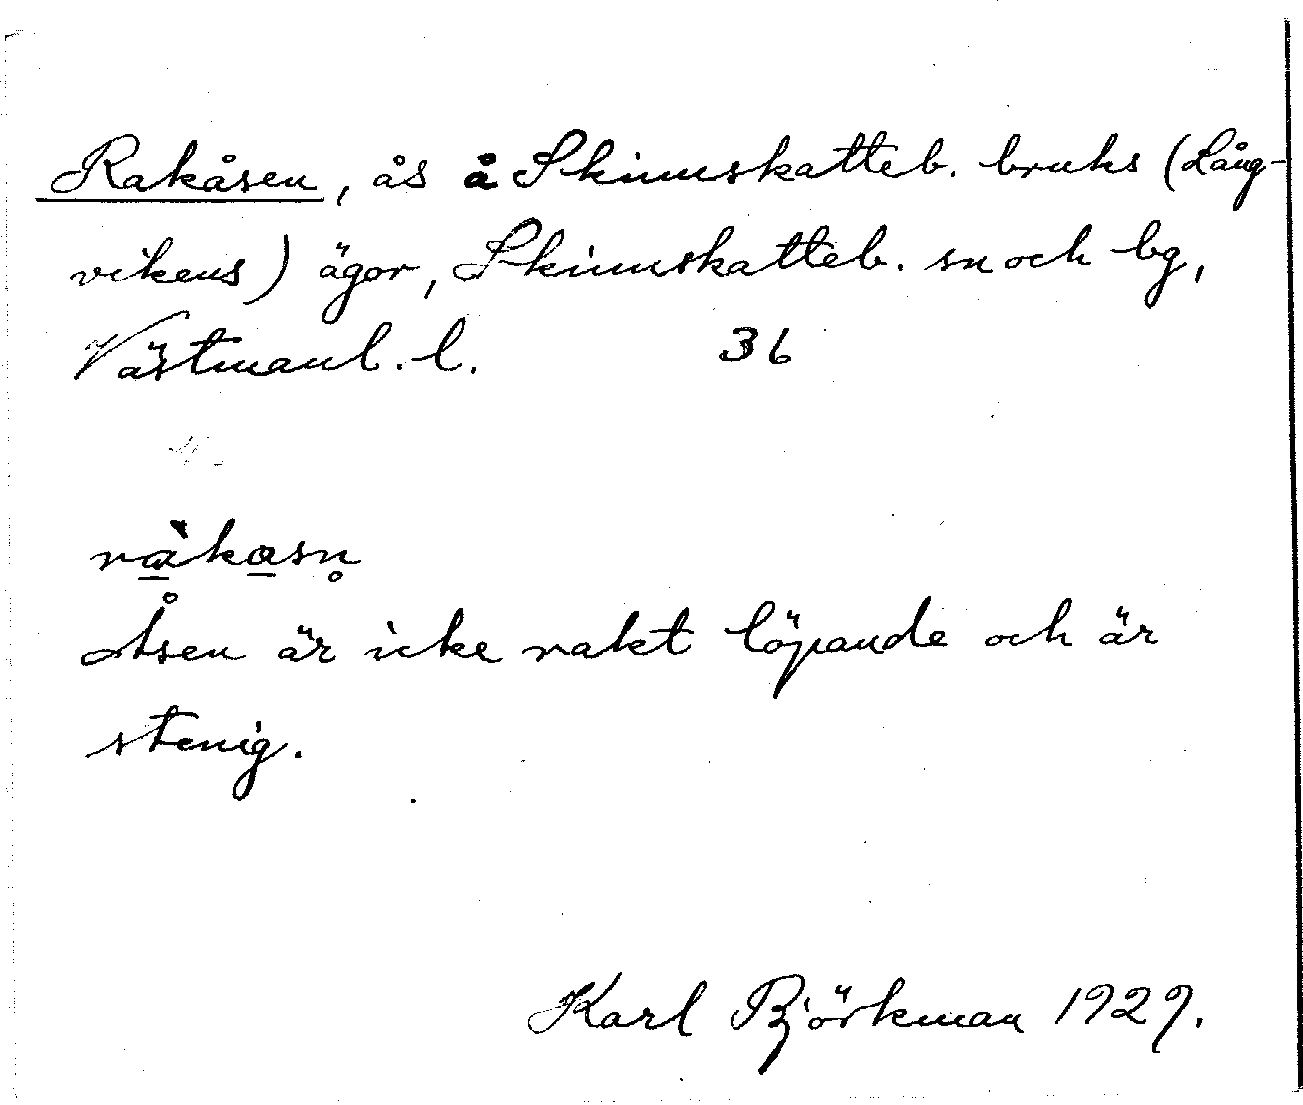 Rakåsen, ås å Skinnskatteb. bruks (Lång-
vikens) ägor, Skinnskatteb. sn och bg,
Västmanl. l. 36
ràkasn̥
Åsen är icke rakt löpande och är
stenig.
Karl Björkman 1929.